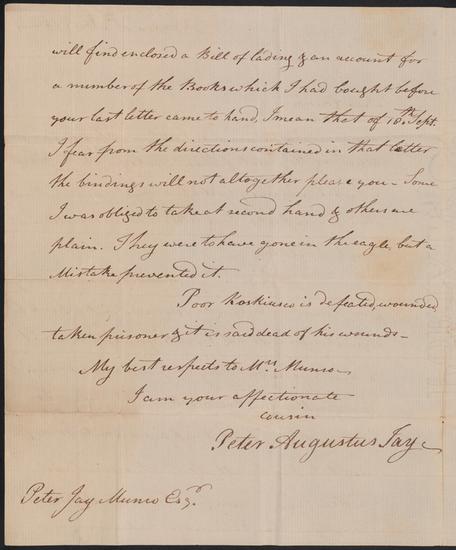 will find enclosed a Bill of lading & an account for
a number of the Books which I had bought before
your last letter came to hand, I mean that of 18th. Sept.
I fear from the directions contained in that letter
the bindings will not altogether please you – Some
I was obliged to take at second hand & others are
plain. They were to have gone in the eagle, but a
Mistake prevented it.
Poor Koskiusco is defeated, wounded,
taken prisoner & it is said dead of his wounds –
My best respects to Mrs. Munro
I am your affectionate
cousin
Peter Augustus Jay
Peter Jay Munro Esqr.